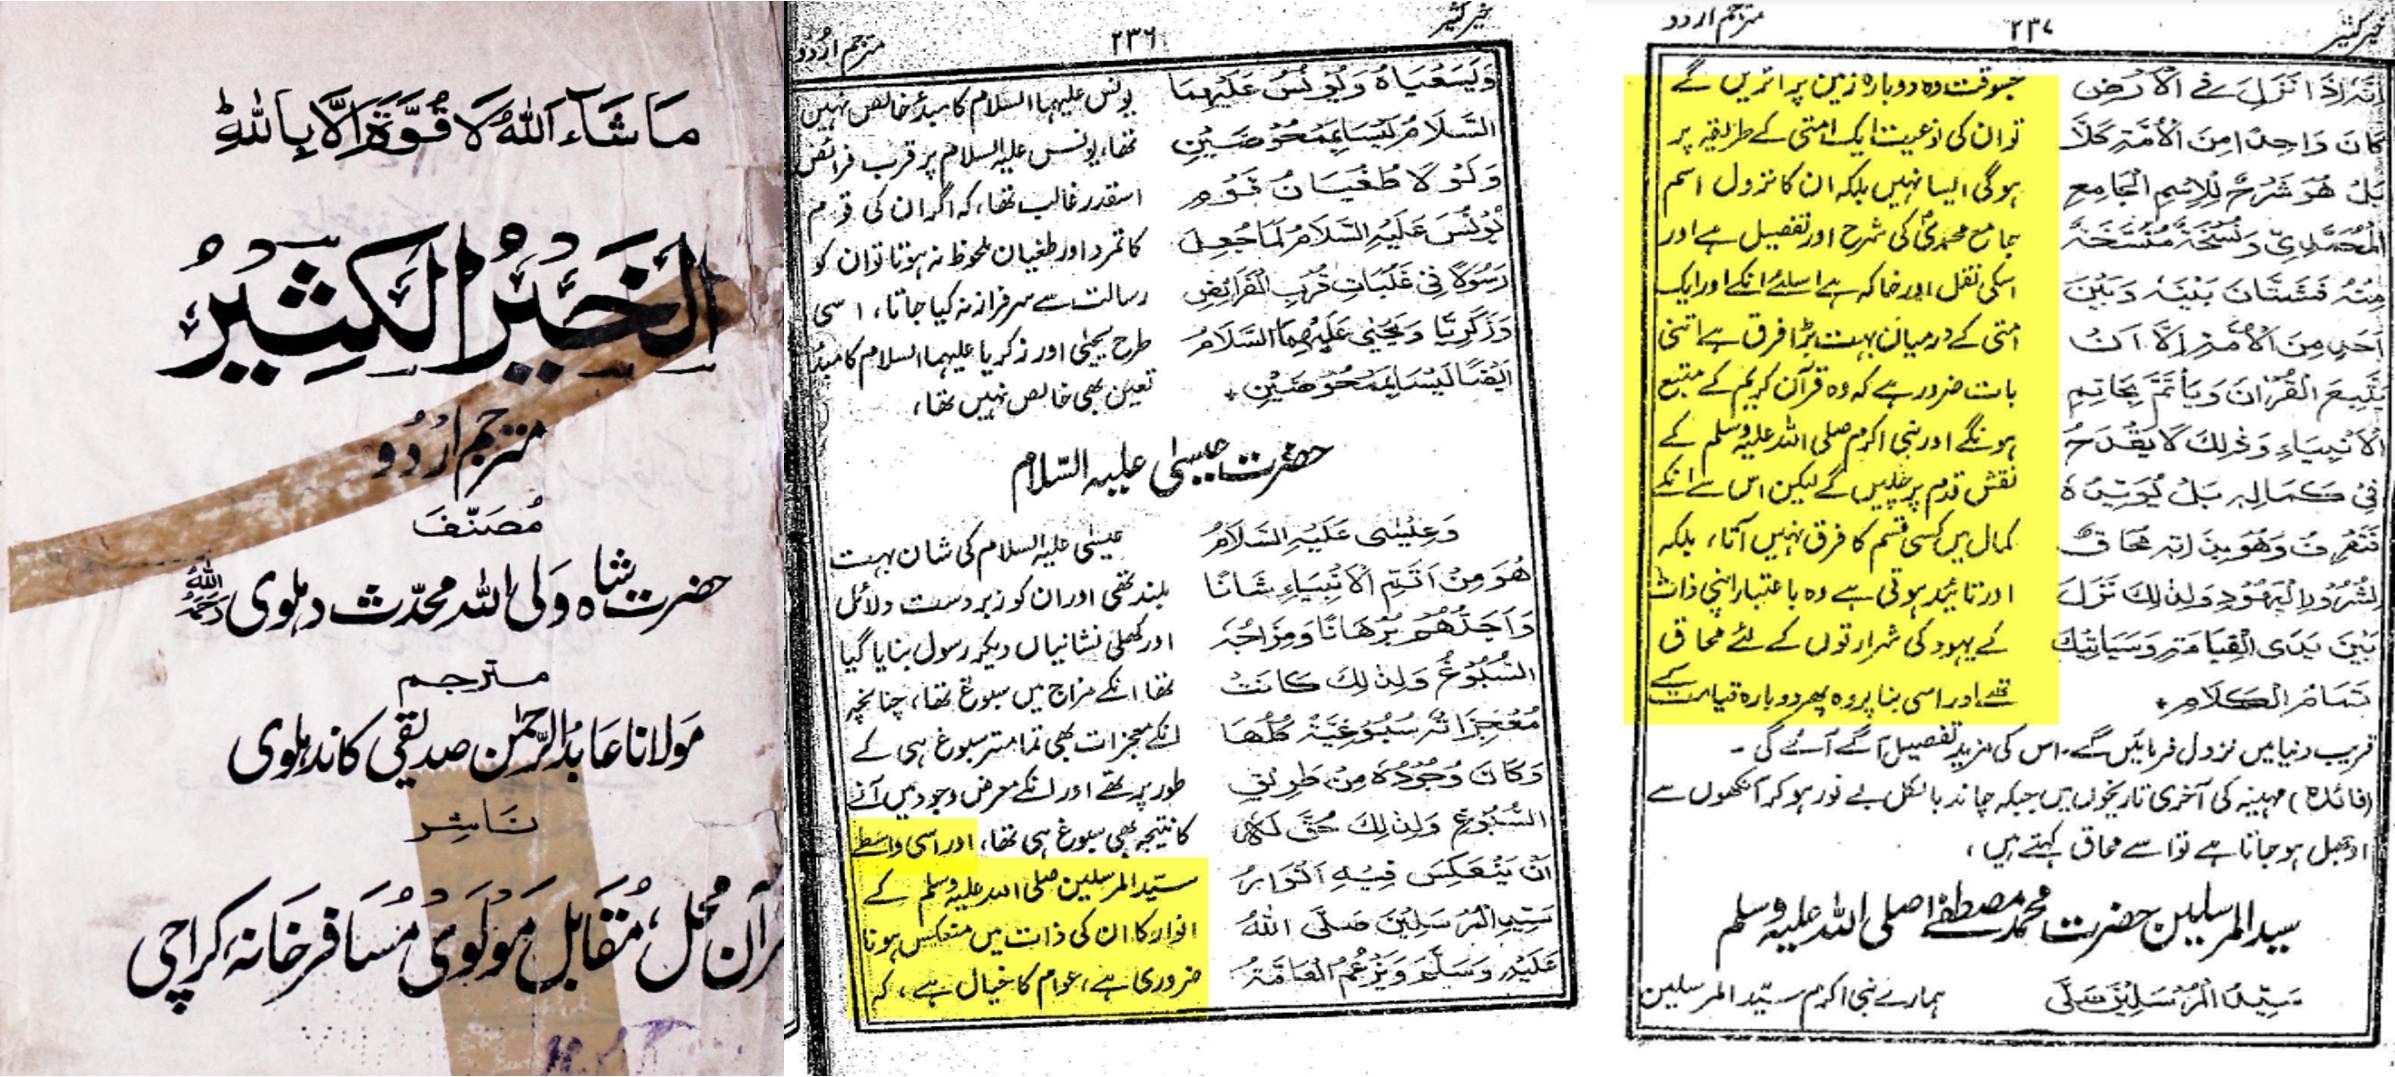 مَا شَاءَ اللّٰهُ لَا قُوَّةَ اِلَّا بِاللّٰهِ
اَلْخَيْرُ الْكَثِيْرُ
مترجم اردو
مُصَنّفَ
حضرت شاه ولی اللہ محدّث دہلوی رحمہ اللہ
مترجم
مولانا عابد الرحمٰن صدیقی کاندہلوی
ناشر
قرآن محل، مقابل مولوی مسافر خانہ، کراچی
خیر کثیر
۲۳۶
مترجم اردو
وَلَيَسَعْيَاهُ وَيُوْنُسُ عَلَيْهِمَا
السَّلَامُ لَيْسَا بِمَمْحُوْضَيْنِ
وَلَوْ لَا طُغْيَانُ قَوْمِ
يُوْنُسَ عَلَيْهِ السَّلَامُ لَمَا جُعِلَ
رَسُوْلًا فِیْ غَلَبَاتِ قُرْبِ الْفَرَائِضِ
وَزَكَرِيَّا وَيَحْيٰى عَلَيْهِمَا السَّلَامُ
اَيْضًا لَيْسَا بِمَمْحُوْضَيْنِ *
یونس علیہما السلام کا مبدأ خالص نہیں
تھا، یونس علیہ السلام پر قرب فرائض
اسقدر غالب تھا، کہ اگر ان کی قوم
کا تمرد اور طغیان ملحوظ نہ ہوتا تو ان کو
رسالت سے سرفراز نہ کیا جاتا، اسی
طرح یحیٰی اور زکریا علیہما السلام کا مبدأ
تعین بھی خالص نہیں تھا،
حضرت عیسیٰ علیہ السّلام
وَعِيْسٰى عَلَيْهِ السَّلَامُ
هُوَ مِنْ اَتَمِّ الْاَنْبِيَاءِ شَانًا
وَاَجَلِّهُمْ بُرْهَانًا وَمِزَاجُهٗ
السُّبُوْغُ وَلِذٰلِكَ كَانَتْ
مُعْجِزَاتُهٗ سُبُوْغِيَّةً كُلُّهَا
وَكَانَ وُجُوْدُهٗ مِنْ طَرِيْقِ
السُّبُوْغِ وَلِذٰلِكَ حُقَّ لَهٗ
اَنْ يَنْعَكِسَ فِيْهِ اَنْوَارُ
سَيِّدِ الْمُرْسَلِيْنَ صَلَّى اللّٰهُ
عَلَيْهِ وَسَلَّمَ وَيَزْعُمُ الْعَامَّةُ
عیسٰی علیہ السلام کی شان بہت
بلند تھی اور ان کو زبردست دلائل
اور کھلی نشانیاں دیکر رسول بنایا گیا
تھا انکے مزاج میں سبوغ تھا، چنانچہ
انکے معجزات بھی تمامتر سبوغ ہی کے
طور پر تھے اور انکے معرض وجود میں آنے
کا نتیجہ بھی سبوغ ہی تھا، اور اسی واسطے
سیّد المرسلین صلی اللہ علیہ وسلم کے
انوار کا ان کی ذات میں منعکس ہونا
ضروری ہے، عوام کا خیال ہے، کہ
خیر کثیر
۲۳۷
مترجم اردو
اَنَّهٗ اِذَا نَزَلَ فِی الْاَرْضِ
كَانَ وَاحِدًا مِنَ الْاُمَّةِ كَلَّا
بَلْ هُوَ شَرْحٌ لِلْاِسْمِ الْجَامِعِ
الْمُحَمَّدِيِّ وَنُسْخَةٌ مُنْتَسَخَةٌ
مِنْهُ فَشَتَّانَ بَيْنَهٗ وَبَيْنَ
اَحَدٍ مِنَ الْاُمَّةِ اِلَّا اَنْ
يَتَّبِعَ الْقُرْاٰنَ وَيَأْتَمَّ بِخَاتِمِ
الْاَنْبِيَاءِ وَذٰلِكَ لَا يَقْدَحُ
فِیْ كَمَالِهٖ بَلْ يُؤَيِّدُهٗ
فَتَعَرَّفْ وَهُوَ مِنْ ذَاتِهٖ مُحَاقٌ
لِشُرُوْرِ الْيَهُوْدِ وَلِذٰلِكَ نَزَلَ
بَيْنَ يَدَیِ الْقِيَامَةِ وَسَيَأْتِيْكَ
تَمَامُ الْكَلَامِ *
جسوقت وہ دوبارہ زمین پر اتریں گے
تو ان کی نوعیت ایک امتی کے طریقہ پر
ہوگی ایسا نہیں بلکہ ان کا نزول اسم
جامع محمدیؐ کی شرح اور تفصیل ہے اور
اسکی نقل اور خاکہ ہے اسلئے انکے اور ایک
امتی کے درمیان بہت بڑا فرق ہے اتنی
بات ضرور ہے کہ وہ قرآن کریم کے متبع
ہونگے اور نبی اکرم صلی اللہ علیہ وسلم کے
نقش قدم پر چلیں گے لیکن اس سے انکے
کمال میں کسی قسم کا فرق نہیں آتا، بلکہ
اور تائید ہوتی ہے وہ باعتبار اپنی ذات
کے یہود کی شرارتوں کے لئے محاق
تھے اور اسی بنا پر وہ پھر دوبارہ قیامت کے
قریب دنیا میں نزول فرمائیں گے۔ اس کی مزید تفصیل آگے آئے گی۔
(فائدہ) مہینہ کی آخری تاریخوں میں جبکہ چاند بالکل بے نور ہو کر آنکھوں سے
اوجھل ہو جاتا ہے تو اسے محاق کہتے ہیں،
سید المرسلین حضرت محمد مصطفےٰ صلی اللہ علیہ وسلم
سَيِّدُ الْمُرْسَلِيْنَ صَلَّى
ہمارے نبی اکرم سیّد المرسلین